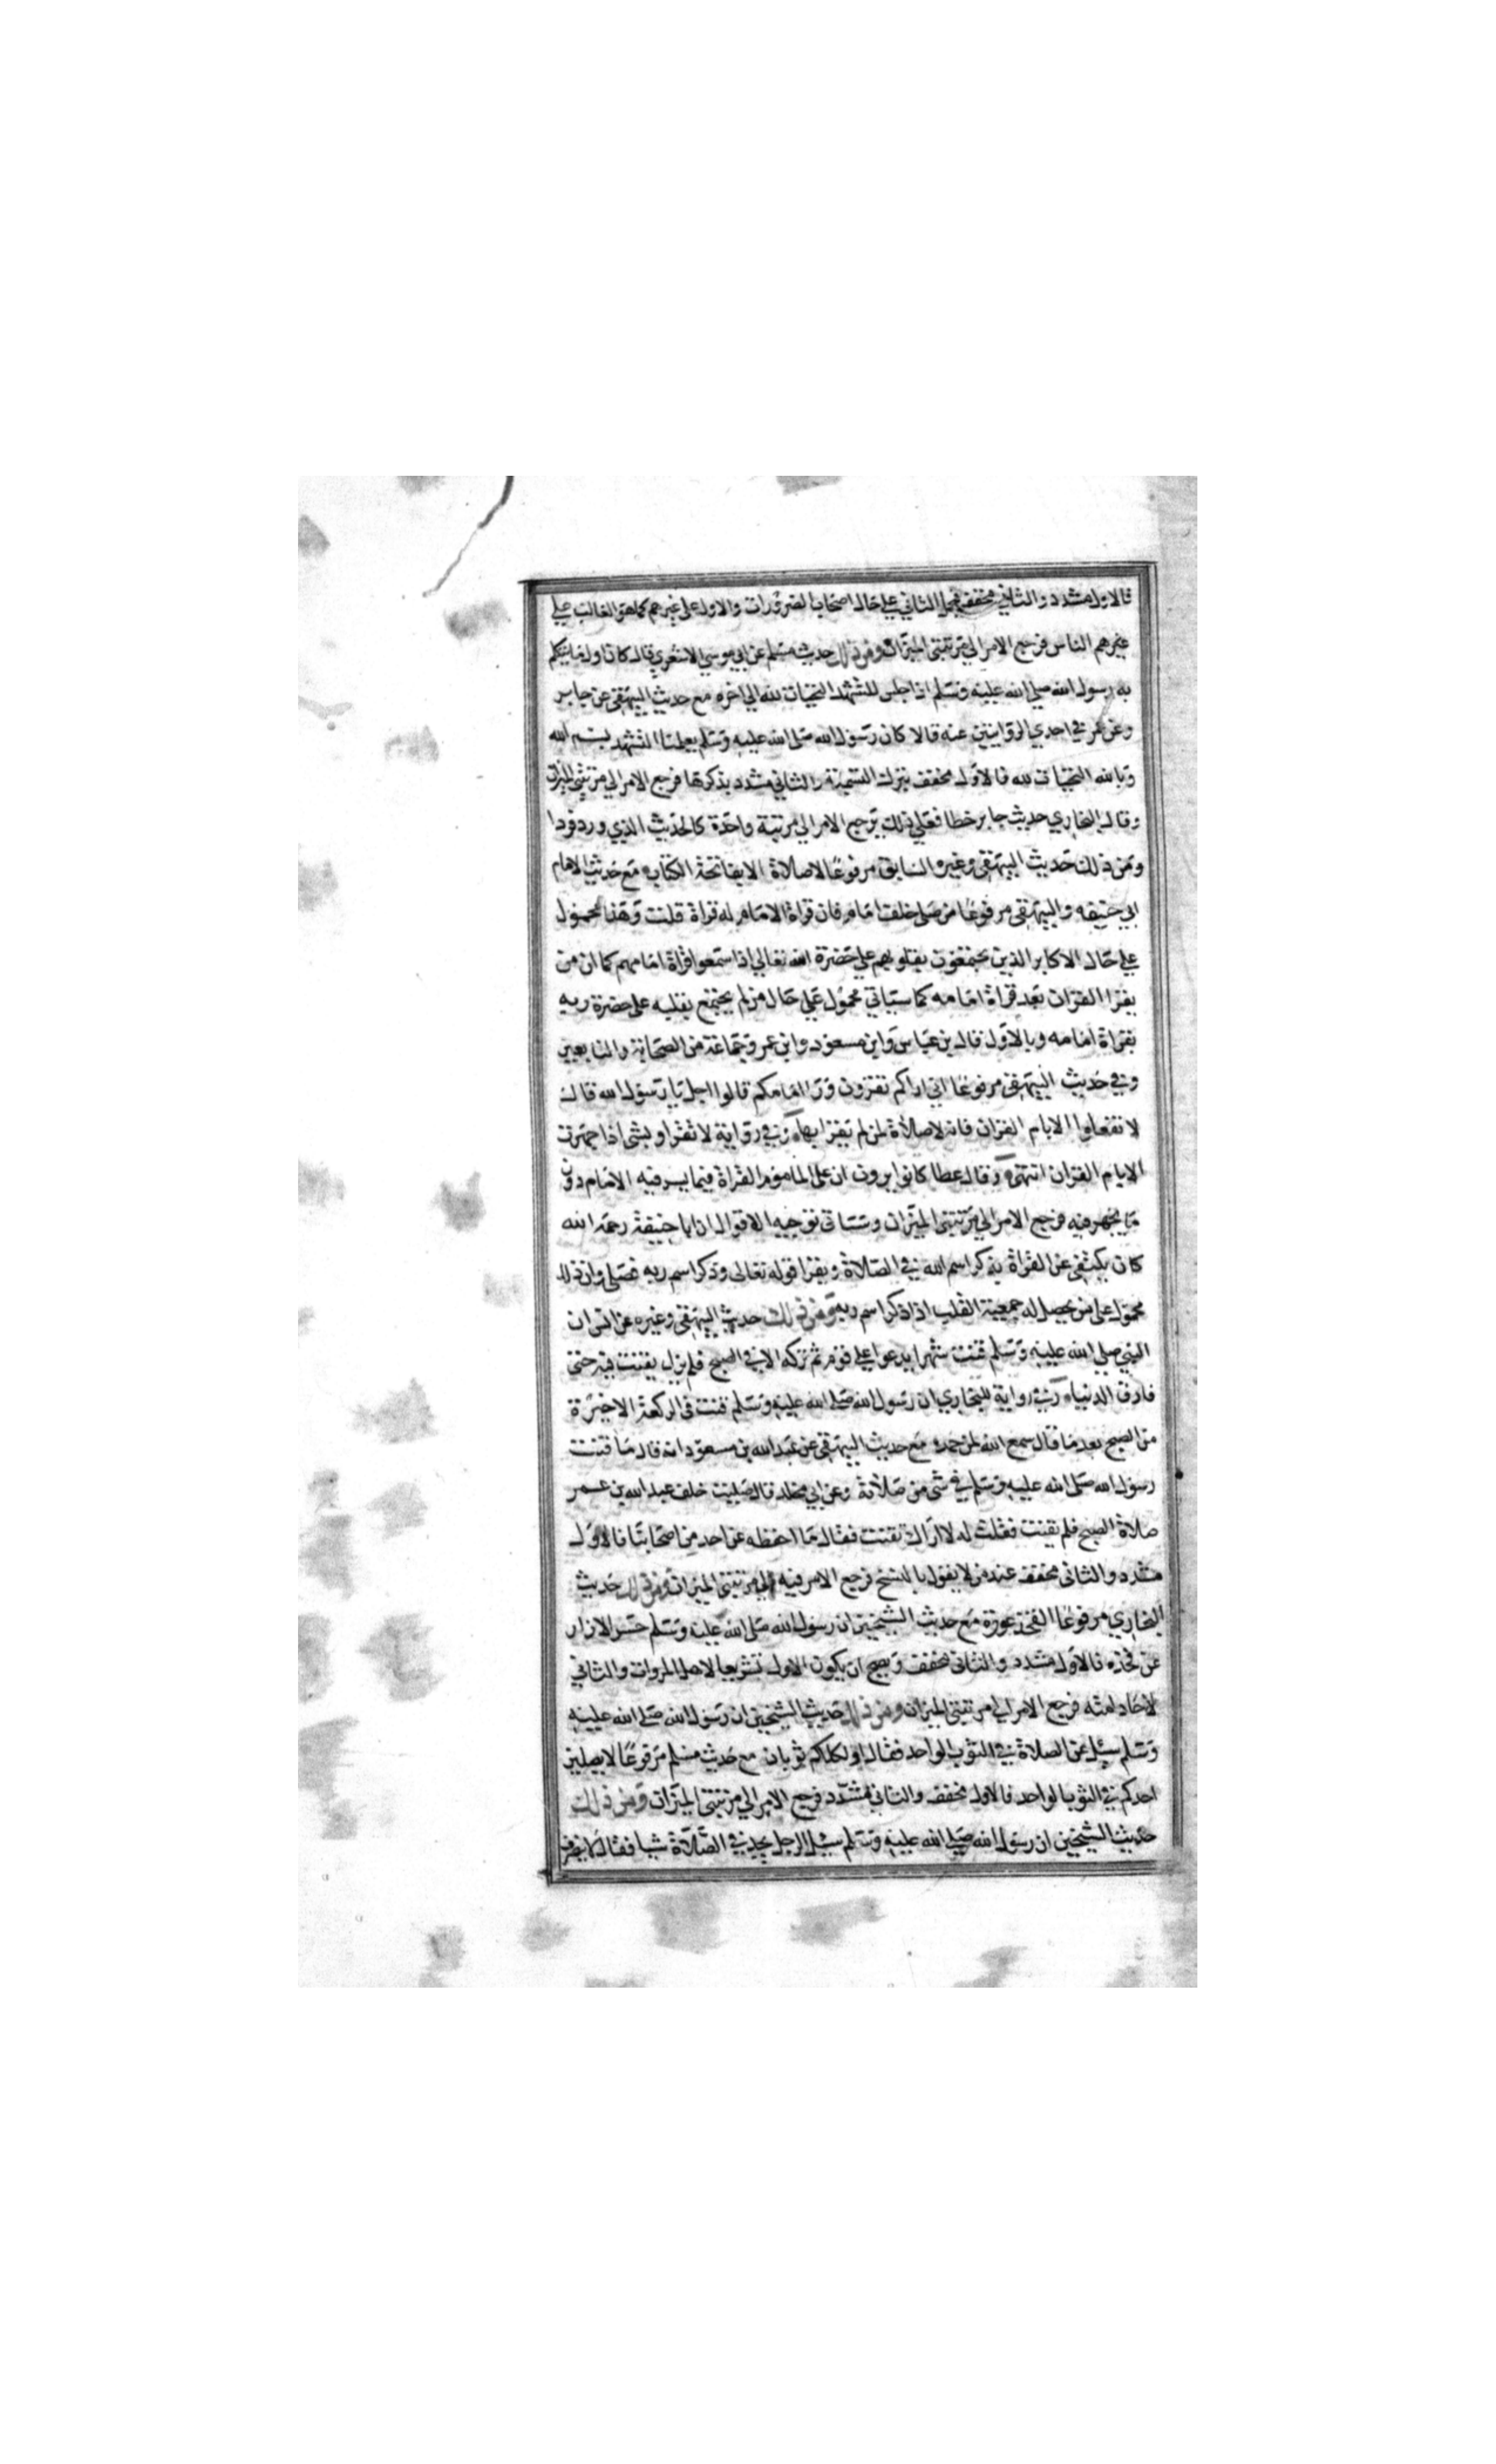 فالاول مشدد والثاني مخفف فيحمل الثاني علي حال اصحاب الضرورات والاول علي غيرهم كما هو الغالب علي
غيرهم الناس فرجع الامر الي مرتبتي الميزان ومن ذلك حديث مسلم عن ابي موسي الاشعري قال كان اول ما يتكلم
به رسول الله صلي الله عليه وسلم اذا جلس للتشهد التحيات لله الي اخره مع حديث البيهقي عن جابر
وعن عمر في احدي الروايتين عنه قالا كان رسول الله صلى الله عليه وسلم يعلمنا التشهد بسم الله
وبالله التحيات لله فالاول مخفف بترك التسمية والثاني مشدد بذكرها فرجع الامر الي مرتبتي الميزان
وقال البخاري حديث جابر خطا فعلي ذلك يرجع الامر الي مرتبة واحدة كالحديث الذي ورد فردا
ومن ذلك حديث البيهقي وغيره السابق مرفوعا لا صلاة الا بفاتحة الكتاب مع حديث الامام
ابي حنيفه والبيهقي مرفوعا من صلى خلف امام فان قراة الامام له قراة قلت وهذا محمول
علي حال الاكابر الذين يجتمعون بقلوبهم علي حضرة الله تعالي اذا سمعوا قراة امامهم كما ان من
يقرا القران بعد قراة امامه كما سياتي محمول علي حال من لم يجتمع بقلبه على حضرة ربه
بقراة امامه وبالاول قال بن عباس وابن مسعود وابن عمر وجماعة من الصحابة والتابعين
وفي حديث البيهقي مرفوعا اني اراكم تقرون ورا امامكم قالوا اجل يا رسول الله قال
لا تفعلوا الا بام القران فانه لا صلاة لمن لم يقرا بها وفي رواية لا تقراو بشي اذا جهرت
الا بام القران انتهى وقال عطا كانوا يرون ان على الماموم القراة فيما يسر فيه الامام دون
ما يجهر فيه فرجع الامر الي مرتبتي الميزان وستاتي توجيه الاقوال ان ابا حنيفة رحمه الله
كان يكتفي عن القراة بذكر اسم الله في الصلاة ويقرا قوله تعالى وذكر اسم ربه فصلي وان ذلك
محمول على من يحصل له جمعية القلب اذا ذكر اسم ربه ومن ذلك حديث البيهقي وغيره عن انس ان
النبي صلي الله عليه وسلم قنت شهرا يدعوا علي قوم ثم تركه الا في الصبح فلم يزل يقنت فيه حتى
فارق الدنيا وفي رواية للبخاري ان رسول الله صلى الله عليه وسلم قنت في الركعة الاخيرة
من الصبح بعد ما قال سمع الله لمن حمده مع حديث البيهقي عن عبد الله بن مسعود انه قال ما قنت
رسول الله صلى الله عليه وسلم في شي من صلاته وعن ابي مخلد قال صليت خلف عبد الله بن عمر
صلاة الصبح فلم يقنت فقلت له لا اراك تقنت فقال ما احفظه عن احد من اصحابنا فالاول
مشدد والثاني مخفف عند من لا يقول بالنسخ فرجع الامر فيه الي مرتبتي الميزان ومن ذلك حديث
البخاري مرفوعا الفخذ عورة مع حديث الشيخين ان رسول الله صلى الله عليه وسلم حسر الازار
عن فخذه فالاول مشدد والثاني مخفف ويصح ان يكون الاول تشريعا لاهل المروات والثاني
لاحاد امته فرجع الامر الي مرتبتي الميزان ومن ذلك حديث الشيخين ان رسول الله صلى الله عليه
وسلم سيل عن الصلاة في الثوب الواحد فقال اولكلكم ثوبان مع حديث مسلم مرفوعا لا يصلين
احدكم في الثوب الواحد فالاول مخفف والثاني مشدد فرجع الامر الي مرتبتي الميزان ومن ذلك
حديث الشيخين ان رسول الله صلي الله عليه وسلم سيل الرجل يجد في الصلاة شيا فقال لا ينصرف